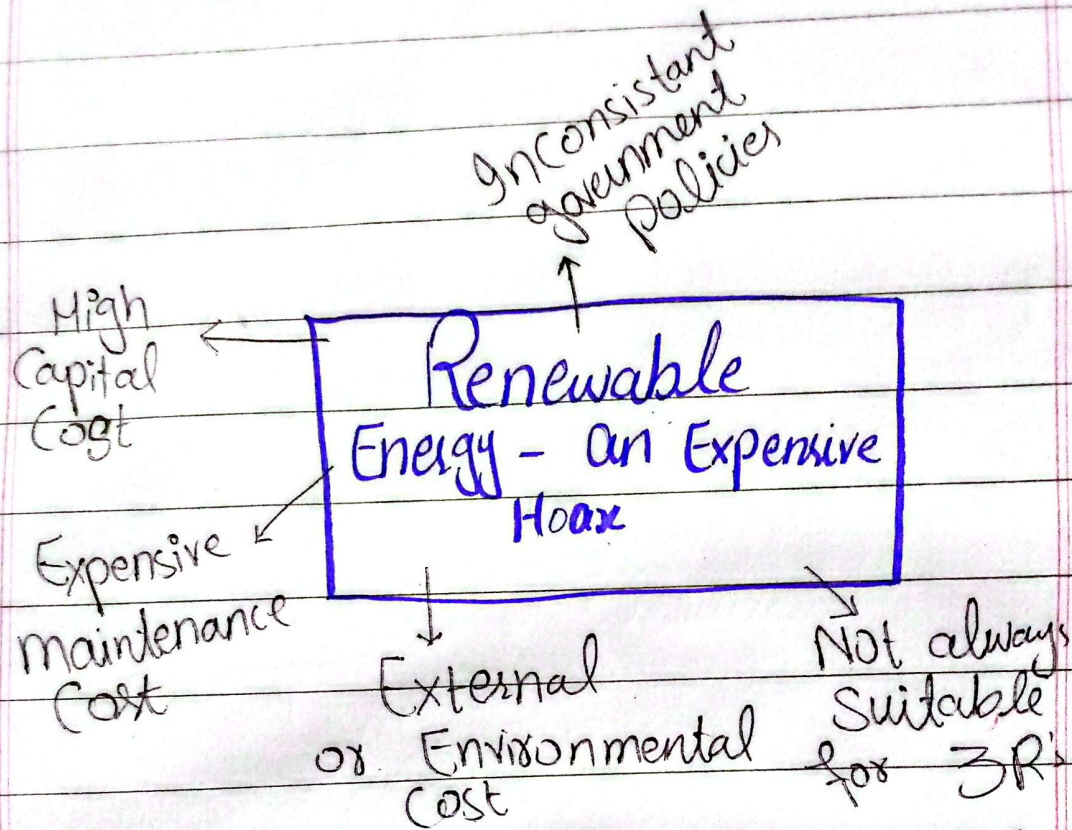 Inconsistant
government
policies
High
Capital
Cost
Renewable
Energy - an Expensive
Hoax
Expensive
maintenance
Cost
External
or Environmental
Cost
Not always
Suitable
for 3R's